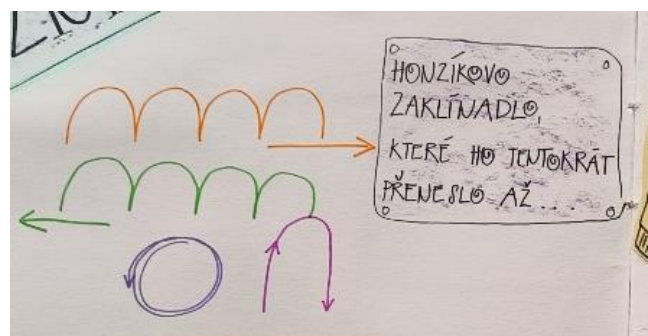 HONZÍKOVO
ZAKLÍNADLO,
KTERÉ HO TENTOKRÁT
PŘENESLO AŽ...